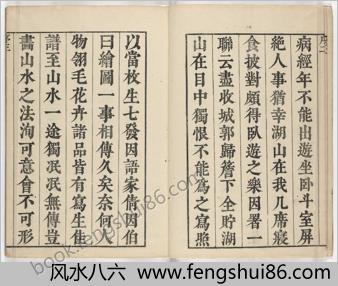 病經年不能出遊坐臥斗室屏
絶人事猶幸湖山在我几席寢
食披對頗得臥遊之樂因署一
聯云盡收城郭歸簷下全貯湖
山在目中獨恨不能為之寫照
以當枚生七發因語家倩因伯
曰繪圖一事相傳久矣奈何人
物翎毛花卉諸品皆有寫生佳
譜至山水一途獨泯泯無傳豈
畵山水之法洵可意會不可形
book.fengshui86.com
風水八六 www.fengshui86.com